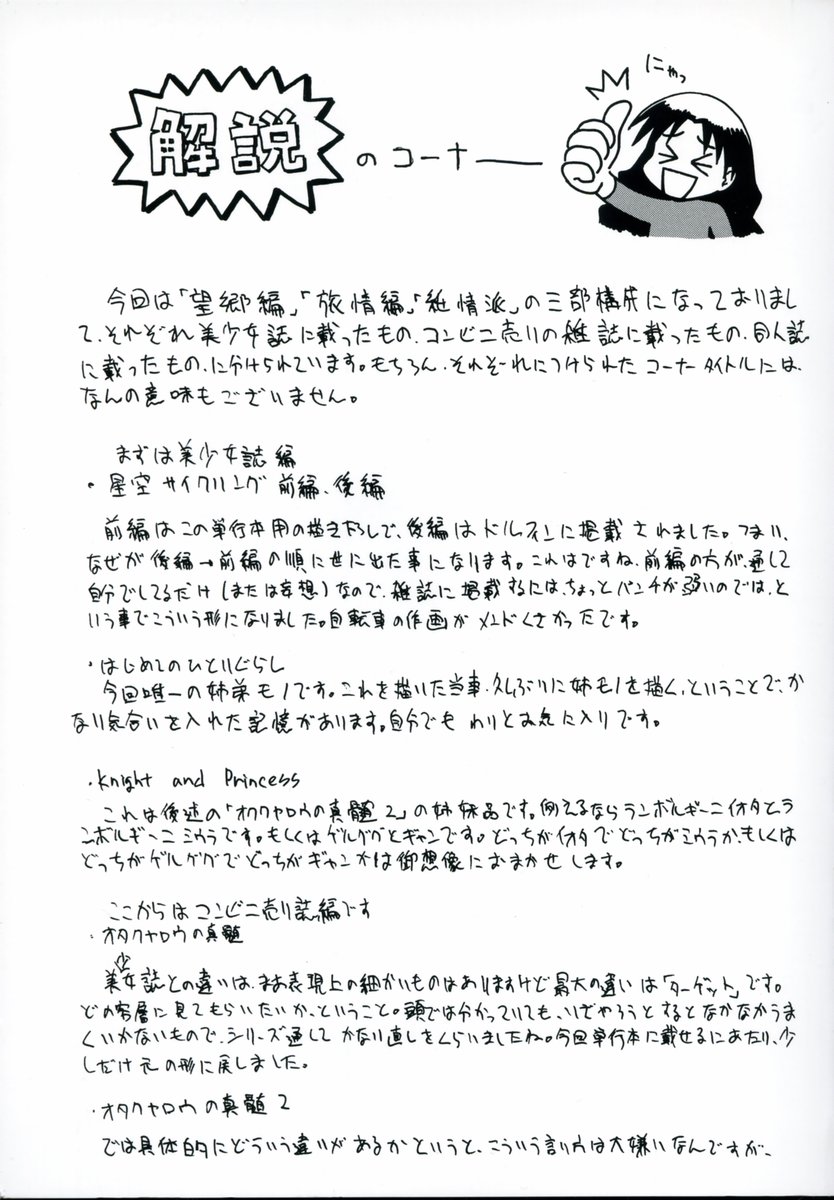 解説のコーナー
にゃっ
今回は「望郷編」「旅情編」「純情派」の三部構成になっておりまし
て、それぞれ美少女誌に載ったもの、コンビニ売りの雑誌に載ったもの、同人誌
に載ったもの、に分けられています。もちろん、それぞれにつけられたコーナータイトルには、
なんの意味もございません。
まずは美少女誌編
・星空サイクリング 前編、後編
前編はこの単行本用の描き下しで、後編はドルフィンに掲載されました。つまり、
なぜか後編→前編の順に世に出た事になります。これはですね、前編の方が、通して
自分でしてるだけ(または妄想)なので、雑誌に掲載するには、ちょっとパンチが弱いのでは、と
いう事でこういう形になりました。自転車の作画がメンドくさかったです。
・はじめてのひとりぐらし
今回唯一の姉弟モノです。これを描いた当事、久しぶりに姉モノを描く、ということで、か
なり気合いを入れた記憶があります。自分でもわりとお気に入りです。
・Knight and Princess
これは後述の「オタクヤロウの真髄2」の姉妹品です。例えるならランボルギーニイオタとラ
ンボルギーニミウラです。もしくはゲルググとギャンです。どっちがイオタでどっちがミウラか、もしくは
どっちがゲルググでどっちがギャンかは御想像におまかせします。
ここからはコンビニ売り誌編です
・オタクヤロウの真髄
美少女誌との違いは、まあ表現上の細かいものはありますけど最大の違いは「ターゲット」です。
どの客層に見てもらいたいか、ということ。頭では分かっていても、いざやろうとするとなかなかうま
くいかないもので、シリーズ通してかなり直しをくらいましたね。今回単行本に載せるにあたり、少
しだけ元の形に戻しました。
・オタクヤロウの真髄 2
では具体的にどういう違いがあるかというと、こういう言い方は大嫌いなんですが、